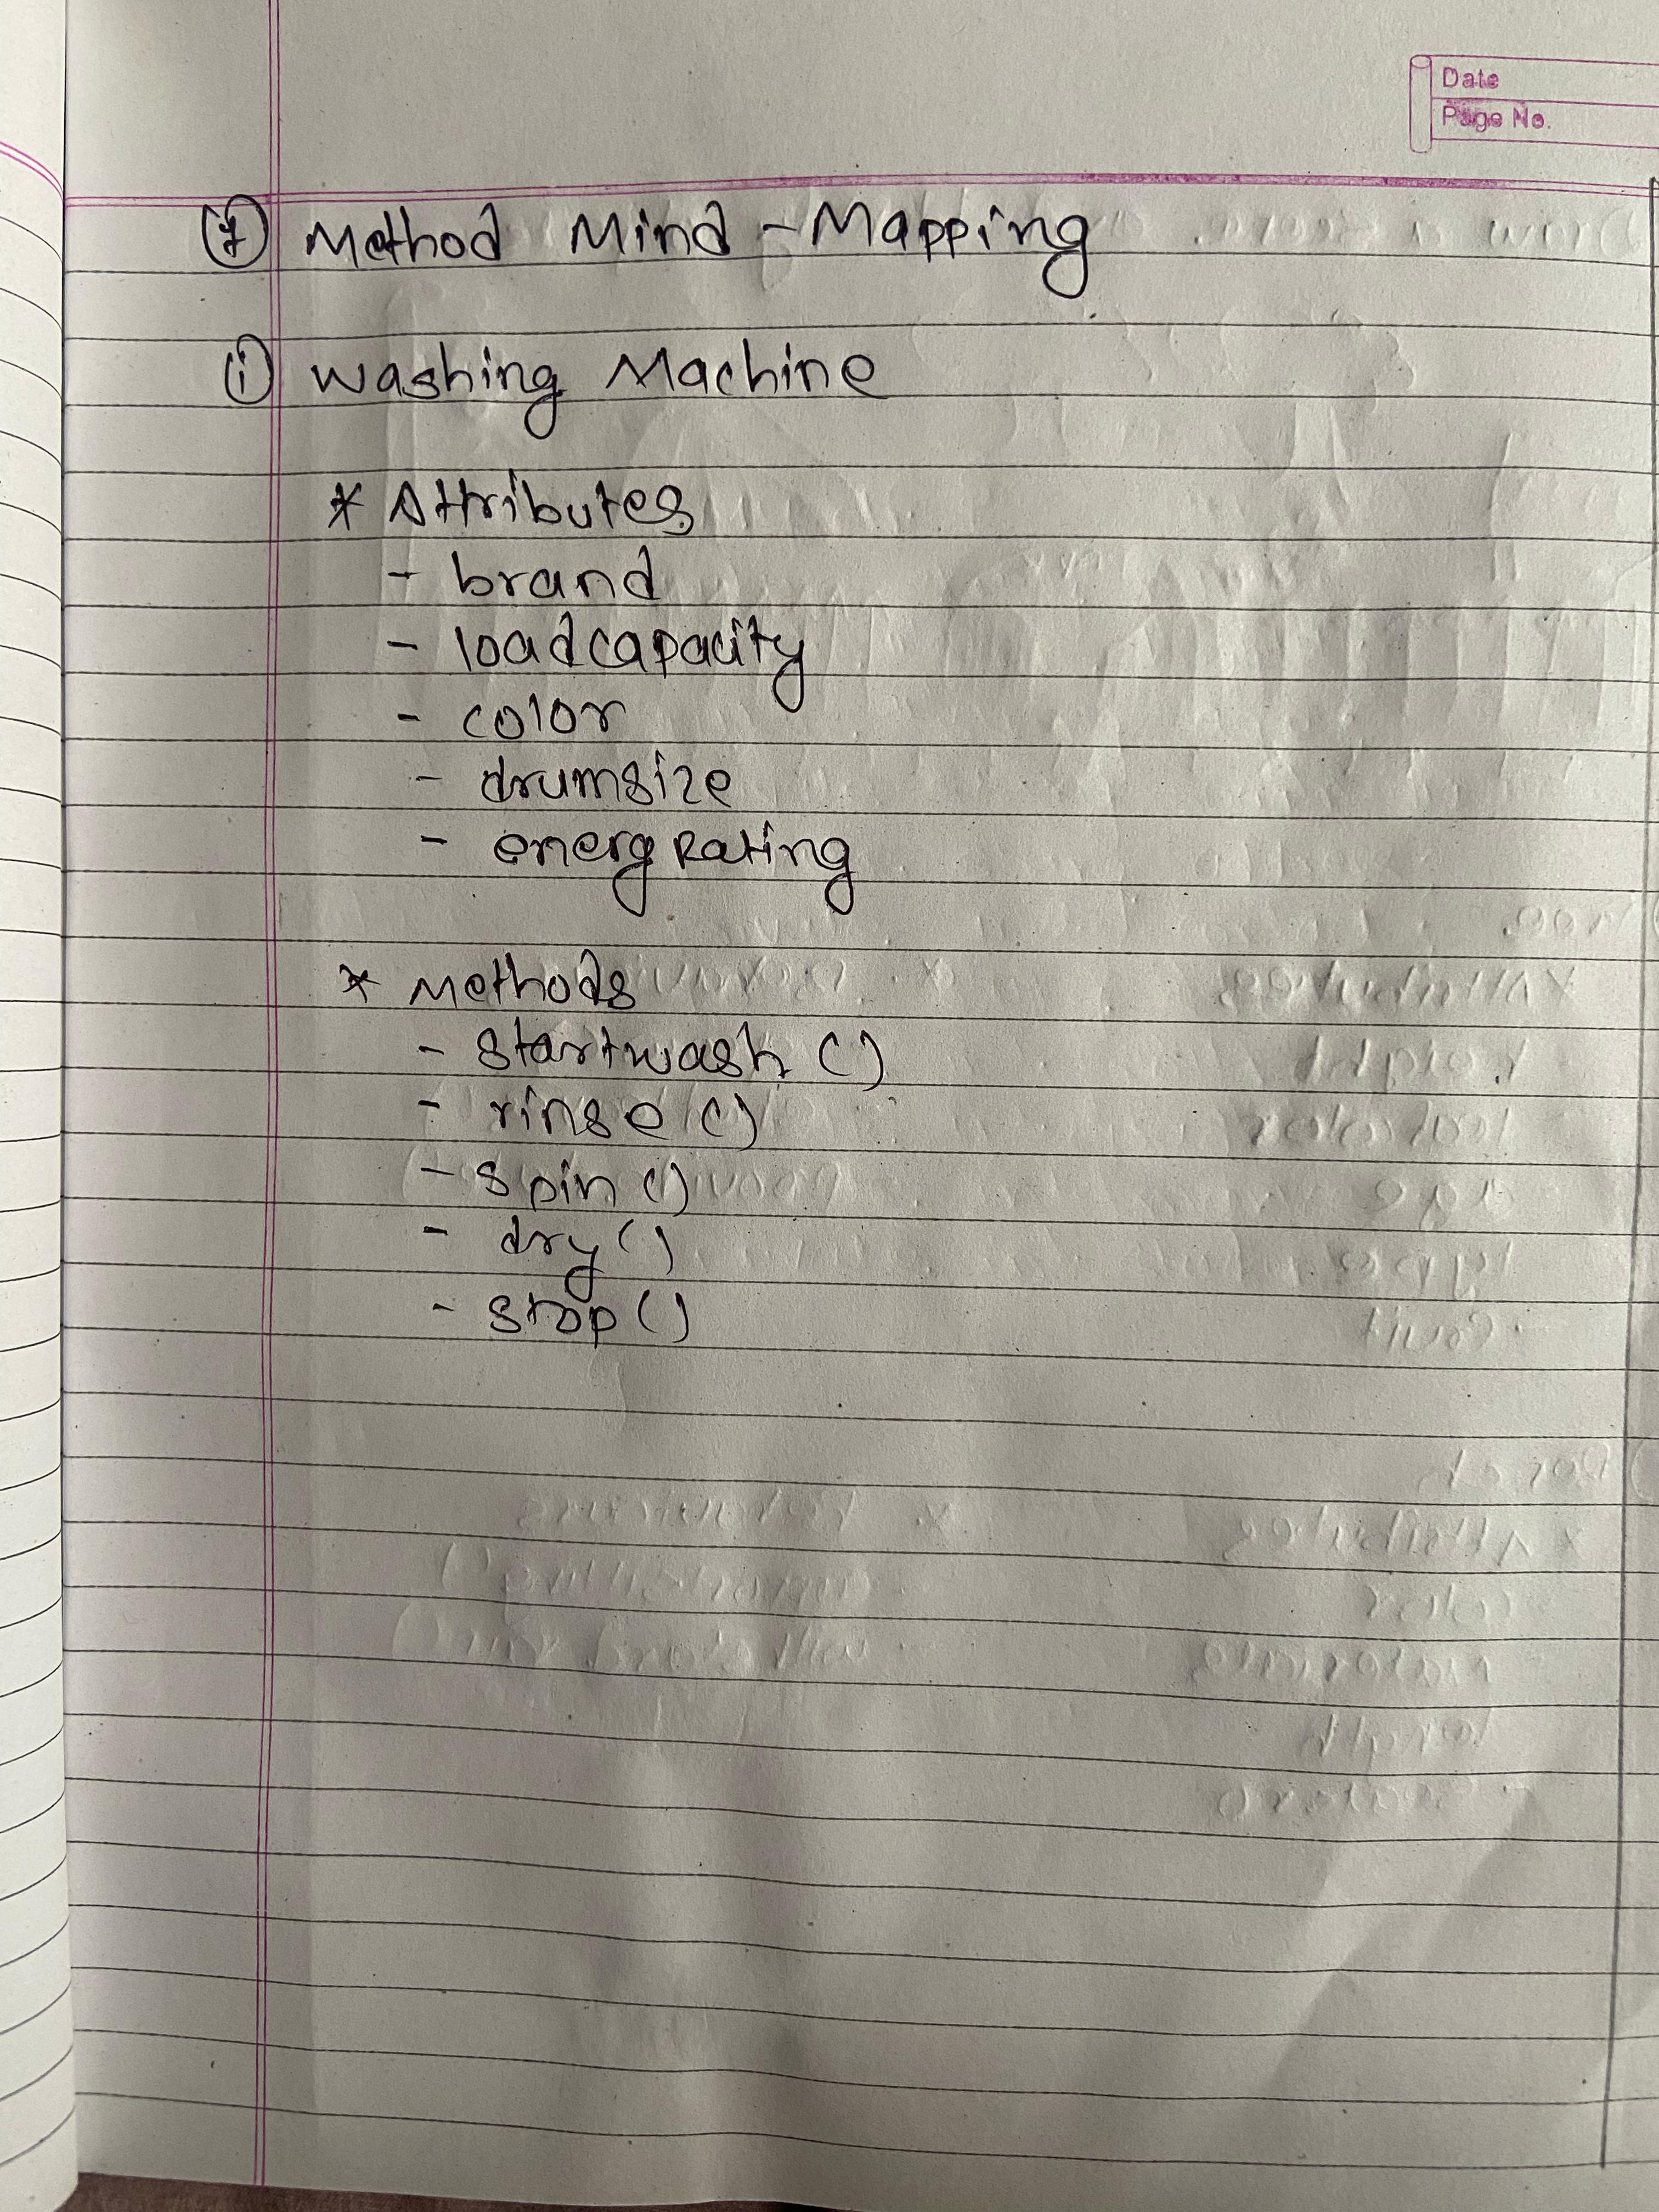 Date
Page No.
(7) Method Mind - Mapping
(i) Washing Machine
* Attributes
- brand
- loadcapacity
- color
- drumsize
- energRating
* Methods
- startwash ()
- rinse ()
- spin ()
- dry ()
- stop ()